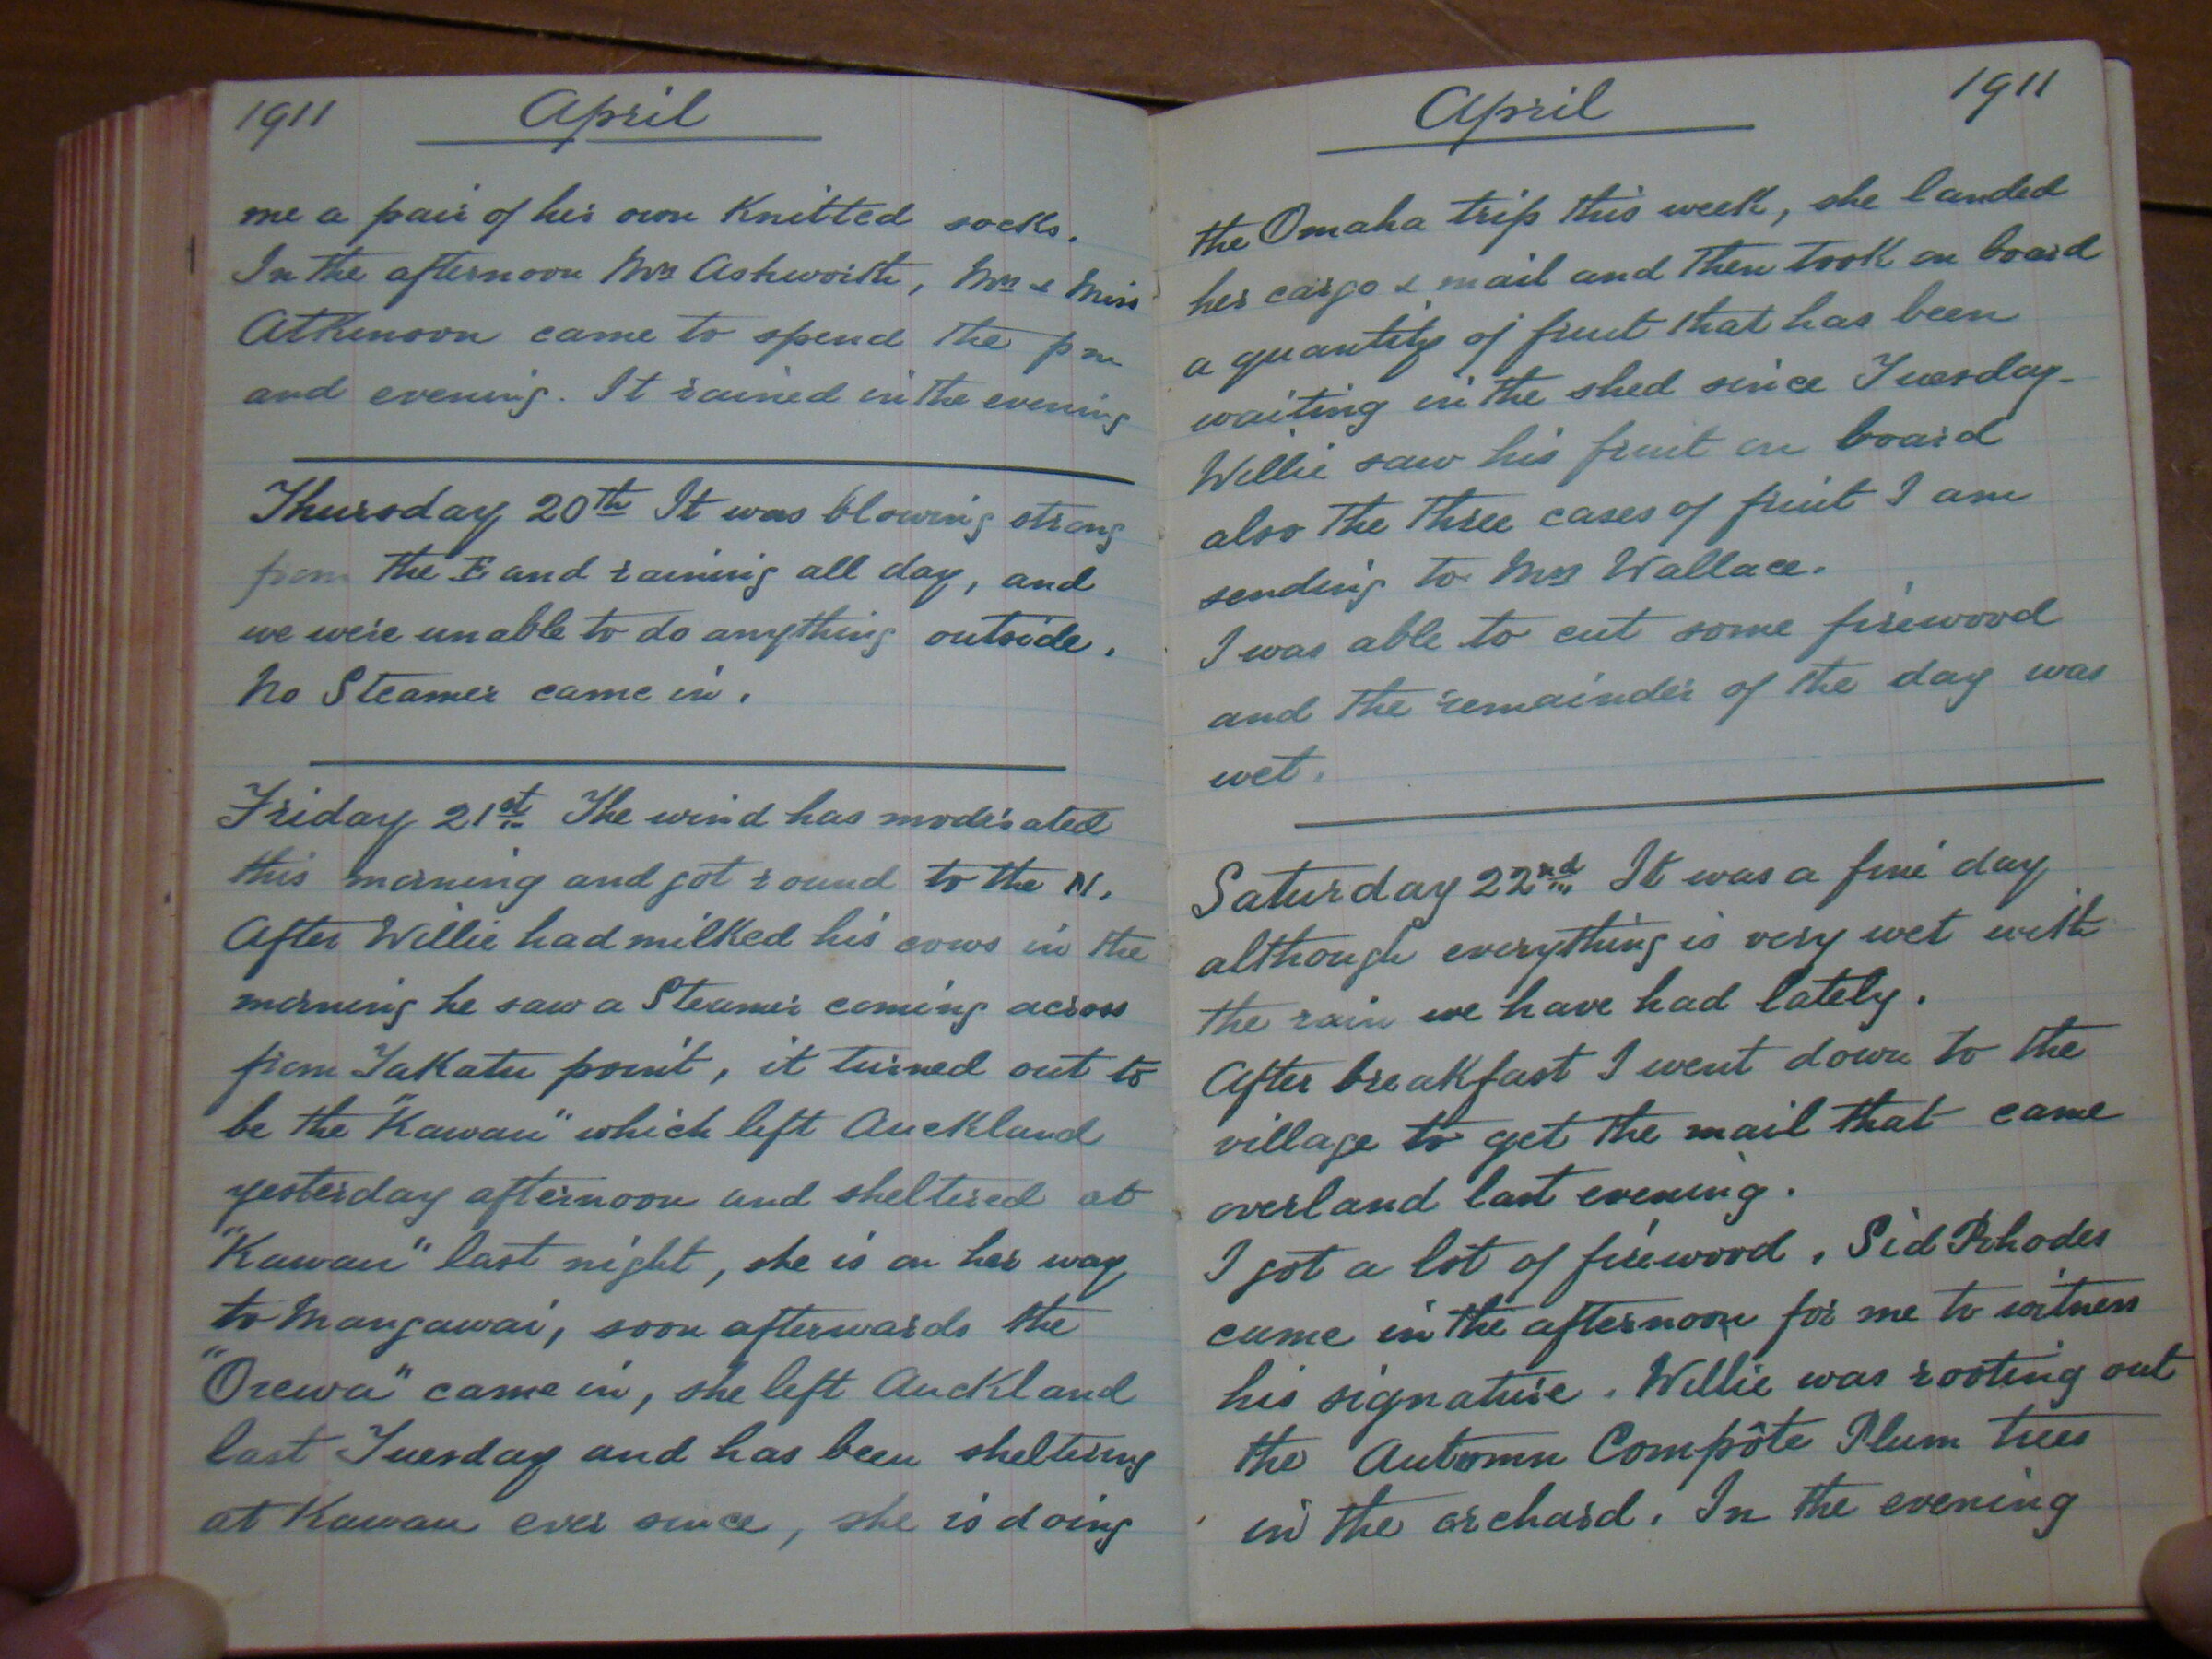 1911 April
me a pair of his own Knitted socks.
In the afternoon Mrs Ashworth, Mrs & Miss
Atkinson came to spend the pm
and evening. It rained in the evening
Thursday 20th It was blowing strong
from the E and raining all day, and
we were unable to do anything outside.
No Steamer came in.
Friday 21st The wind has moderated
this morning and got round to the N.
After Willie had milked his cows in the
morning he saw a Steamer coming across
from Takatu point, it turned out to
be the "Kawau" which left Auckland
yesterday afternoon and sheltered at
"Kawau" last night, she is on her way
to Mangawai, soon afterwards the
"Orewa" came in, she left Auckland
last Tuesday and has been sheltering
at Kawau ever since, she is doing
April 1911
the Omaha trip this week, she landed
her cargo & mail and then took on board
a quantity of fruit that has been
waiting in the shed since Tuesday.
Willie saw his fruit on board
also the three cases of fruit I am
sending to Mrs Wallace.
I was able to cut some firewood
and the remainder of the day was
wet.
Saturday 22nd It was a fine day
although everything is very wet with
the rain we have had lately.
After breakfast I went down to the
village to get the mail that came
overland last evening.
I got a lot of firewood. Sid Rhodes
came in the afternoon for me to witness
his signature. Willie was rooting out
the Autumn Compôte Plum trees
in the orchard. In the evening